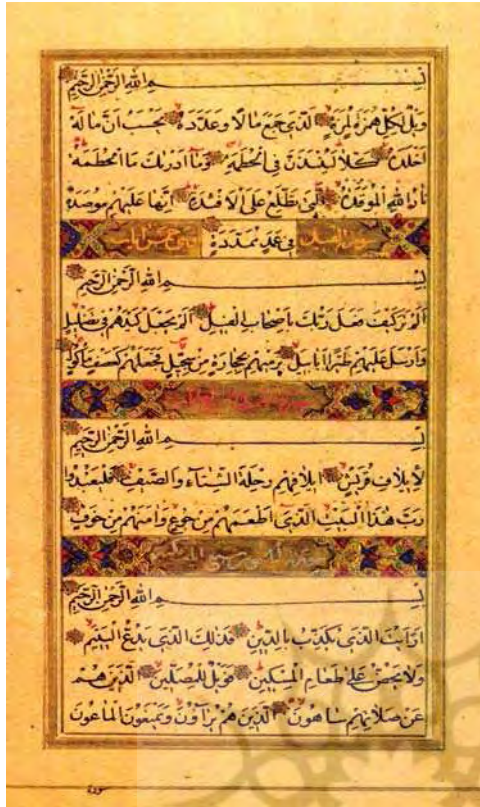 بِسْمِ اللهِ الرَّحْمٰنِ الرَّحِيمِ
وَيْلٌ لِكُلِّ هُمَزَةٍ لُمَزَةٍ الَّذِي جَمَعَ مَالًا وَعَدَّدَهُ يَحْسَبُ أَنَّ مَالَهُ
اَخْلَدَهُ كَلَّا لَيُنْبَذَنَّ فِي الْحُطَمَةِ وَمَا اَدْرٰيكَ مَا الْحُطَمَةُ
نَارُ اللهِ الْمُوقَدَةُ الَّتِي تَطَّلِعُ عَلَى الْاَفْئِدَةِ اِنَّهَا عَلَيْهِمْ مُوصَدَةٌ
سورة الفيل فِي عَمَدٍ مُمَدَّدَةٍ وهي خمس آيات
بِسْمِ اللهِ الرَّحْمٰنِ الرَّحِيمِ
اَلَمْ تَرَ كَيْفَ فَعَلَ رَبُّكَ بِاَصْحَابِ الْفِيلِ اَلَمْ يَجْعَلْ كَيْدَهُمْ فِي تَضْلِيلٍ
وَاَرْسَلَ عَلَيْهِمْ طَيْرًا اَبَابِيلَ تَرْمِيهِمْ بِحِجَارَةٍ مِنْ سِجِّيلٍ فَجَعَلَهُمْ كَعَصْفٍ مَأْكُولٍ
سورة
بِسْمِ اللهِ الرَّحْمٰنِ الرَّحِيمِ
لِإِيلَافِ قُرَيْشٍ اِيلَافِهِمْ رِحْلَةَ الشِّتَاءِ وَالصَّيْفِ فَلْيَعْبُدُوا
رَبَّ هٰذَا الْبَيْتِ الَّذِي اَطْعَمَهُمْ مِنْ جُوعٍ وَاٰمَنَهُمْ مِنْ خَوْفٍ
سورة
بِسْمِ اللهِ الرَّحْمٰنِ الرَّحِيمِ
اَرَاَيْتَ الَّذِي يُكَذِّبُ بِالدِّينِ فَذٰلِكَ الَّذِي يَدُعُّ الْيَتِيمَ
وَلَا يَحُضُّ عَلٰى طَعَامِ الْمِسْكِينِ فَوَيْلٌ لِلْمُصَلِّينَ الَّذِينَ هُمْ
عَنْ صَلَاتِهِمْ سَاهُونَ اَلَّذِينَ هُمْ يُرَاؤُنَ وَيَمْنَعُونَ الْمَاعُونَ
سورة